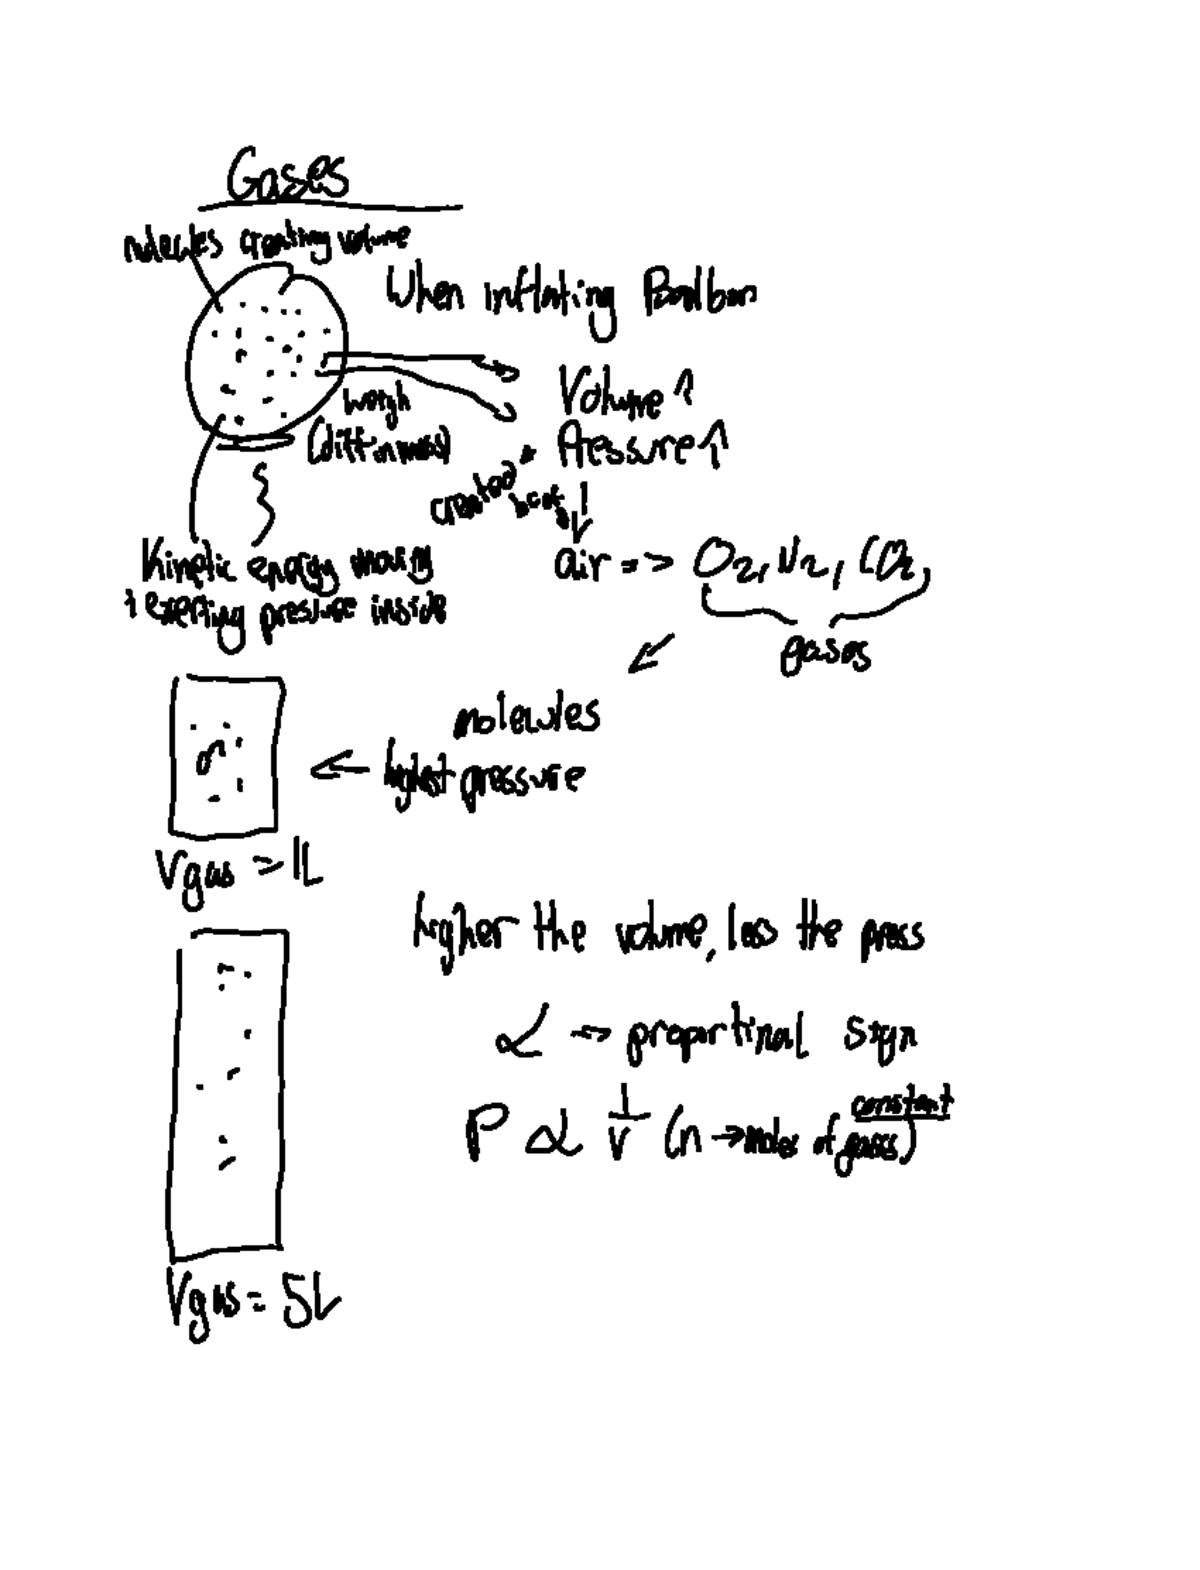 Gases
molecules creating volume
When inflating
Volume ↑
weigh
(diff in mass)
Pressure ↑
created
air => O2, N2, CO2
Kinetic energy moving
+ exerting pressure inside
gases
molecules
← highest pressure
Vgas = 1L
higher the volume, less the press
∝ → proportinal sign
constant
P ∝ 1/V (n → moles of gases)
Vgas = 5L